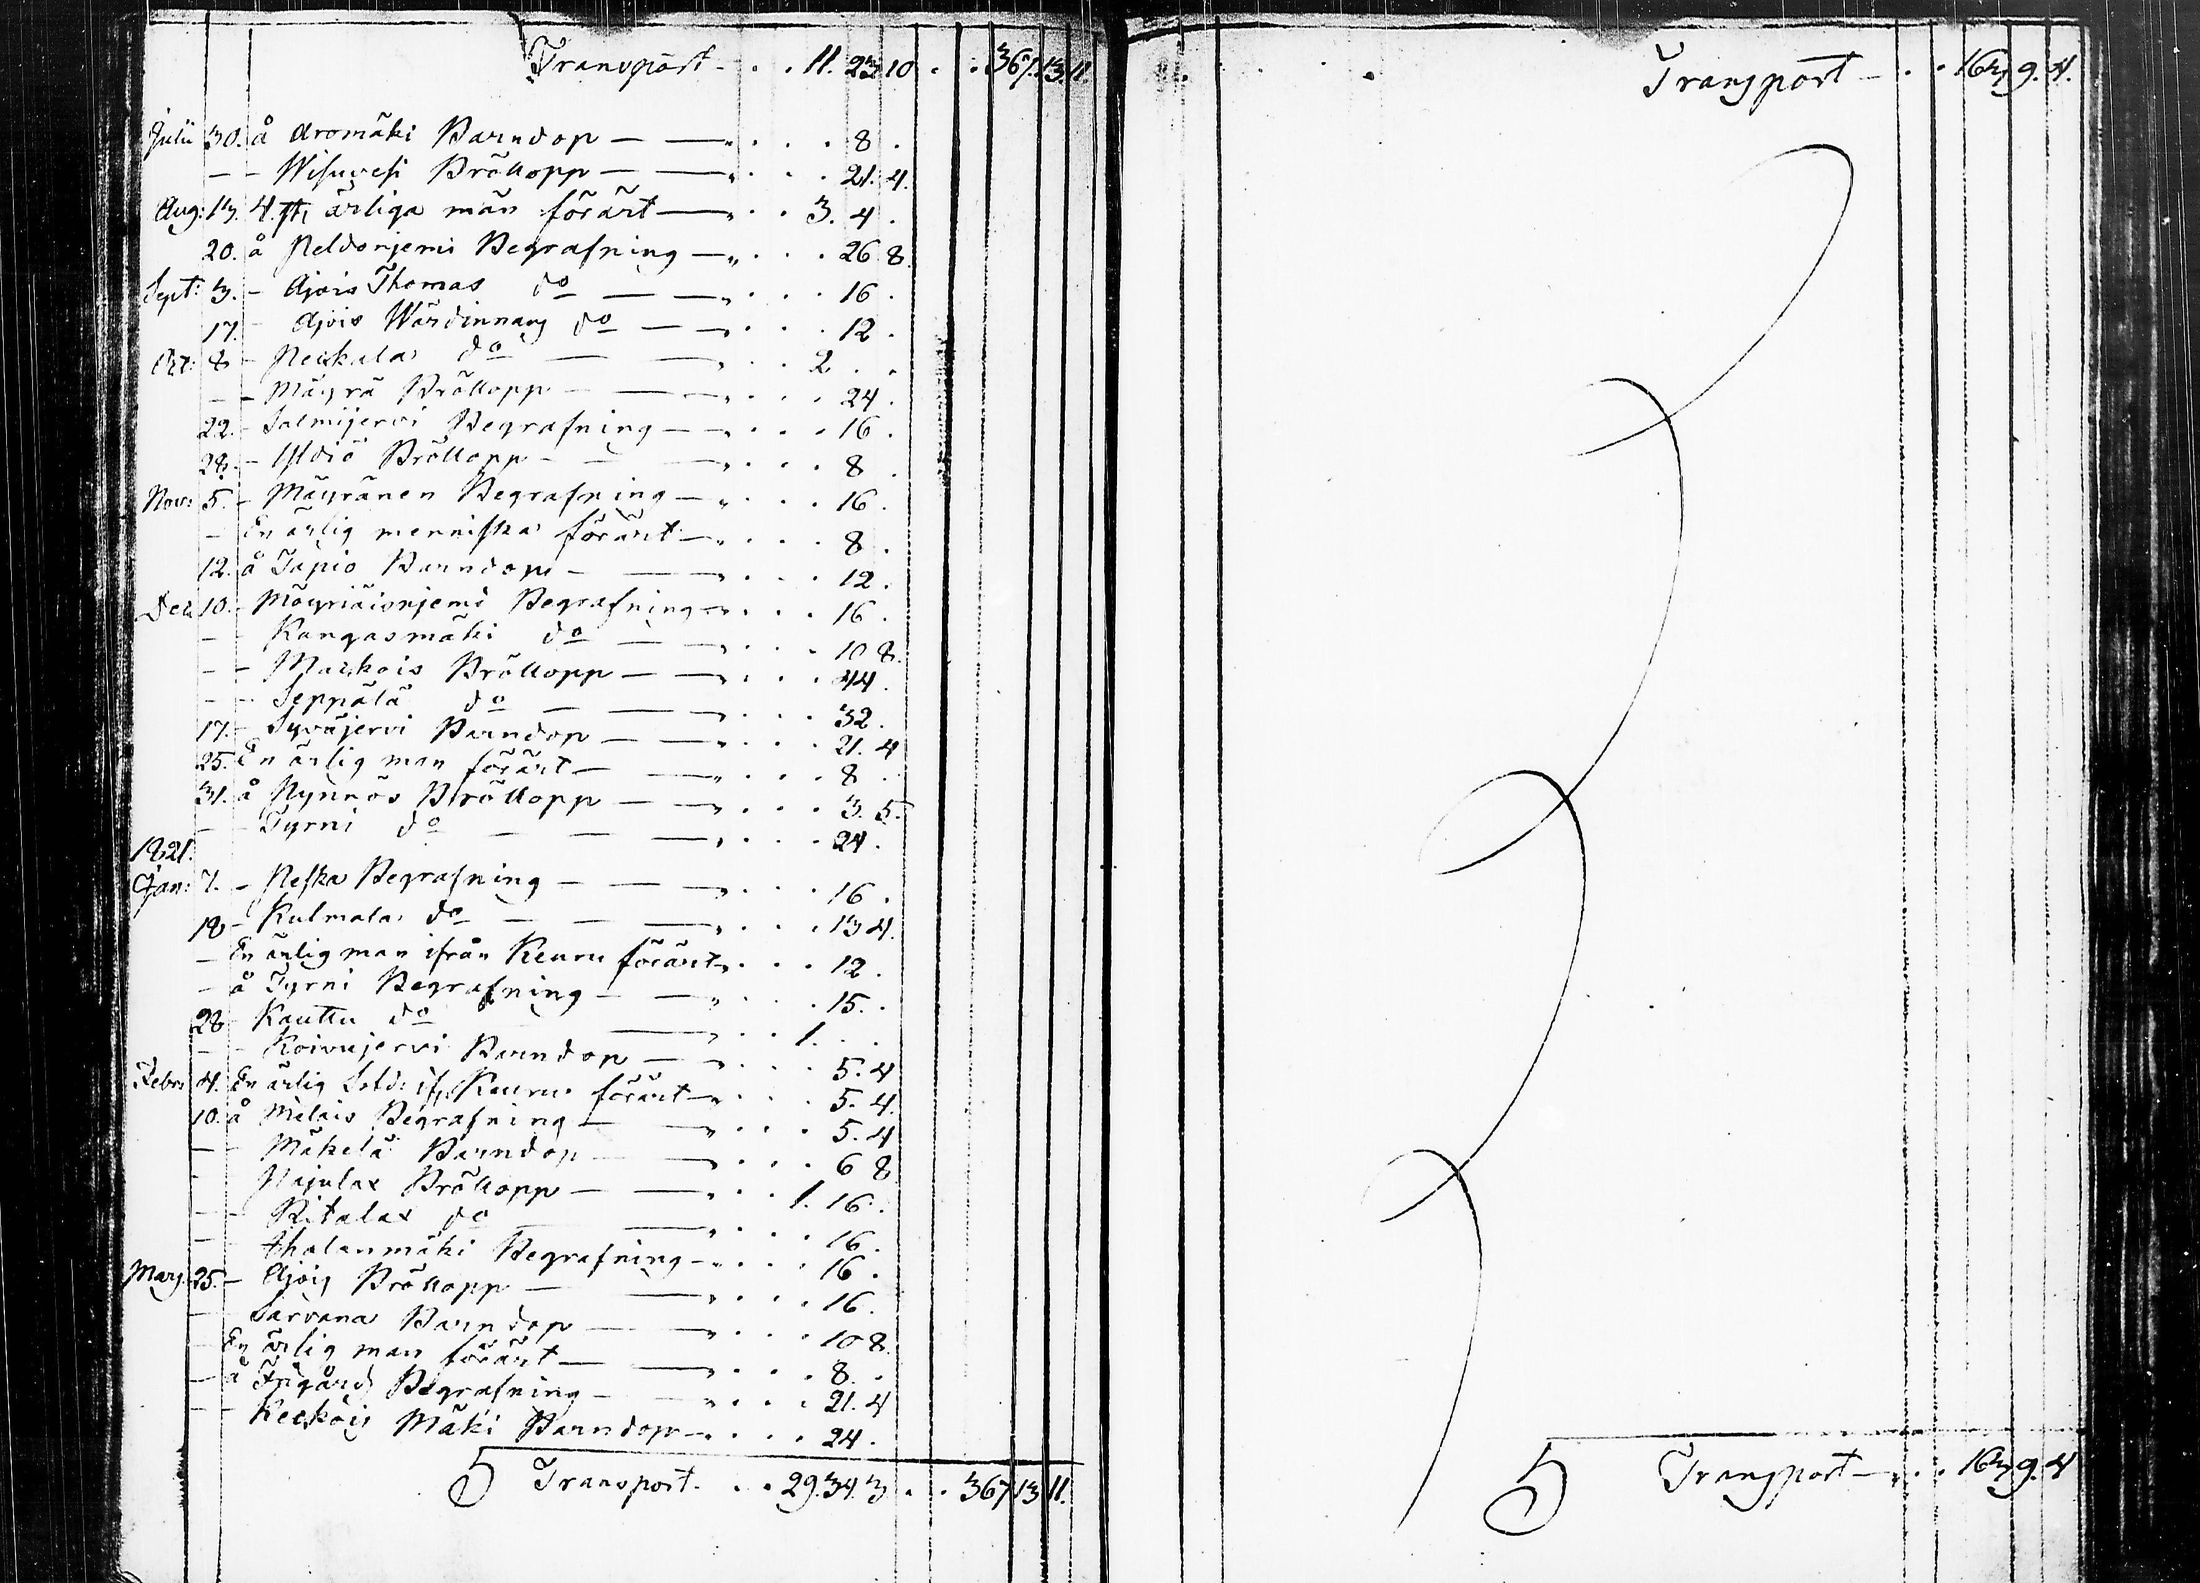 Transport - . . 11. 23 10 . . 367. 13. 11
Julii 30. å Aromäki Barndop — — . . . 8 .
— - Wisuvesi Bröllopp — — . . . 21. 4.
Aug: 13. 4. st. ärliga män förärt — . . 3. 4 .
20. å Peldonjemi Begrafning — . . . 26 8.
Sept: 3. - Ajois Thomas do — — . . . 16 .
17. - Ajois Wärdinnans do — — . . . 12 .
Oct: 8 - Heikkala do — — . . 2 . .
— - Mäyrä Bröllopp — — . . . 24 .
22. - Salmijervi Begrafning — — . . . 16 .
28. - Yldiö Bröllopp — — . . . 8 .
Nov: 5. - Mäyränen Begrafning — . . . 16 .
— En ärlig menniska förärt — . . . 8 .
12. å Tapio Barndop — — . . . 12 .
Dec. 10. - Mäyriäisnjemi Begrafning — . . . 16 .
— - Kangasmäki do — — . . . 10 8.
— - Markois Bröllopp — — . . . 44 .
— - Seppälä do — — . . . 32 .
17. - Syväjervi Barndop — — . . . 21. 4
25. En ärlig man förärt — — . . . 8 .
31. å Nynnös Bröllopp — — . . . 3. 5.
— - Tyrni do — — . . . 24 .
1821.
Jan: 7. - Peska Begrafning — — . . . 16 .
18 - Kulmala do — — . . . 13 4.
— En ärlig man ifrån Keuru förärt . . . 12 .
— å Tyrni Begrafning — — . . . 15. .
28 - Kauttu do — . . 1. . .
— - Koivujervi Barndop — — . . . 5. 4
Febr: 4. En ärlig Sold: ifr. Keuru förärt — . . . 5. 4.
10. å Melais Begrafning — — . . . 5. 4
— - Mäkelä Barndop — — . . . 6 8
- Pajulax Bröllopp — — . . 1. 16 .
— - Ritalax do — . . . 16 .
— Ahalanmäki Begrafning — . . . 16 .
Mars: 25. - Ajois Bröllopp — — . . . 16 .
— Sarvana Barndop — — . . . 10 8.
— En ärlig man förärt — — . . . 8. .
— å Frigård Begrafning — . . . 21. 4
— - Keckois Mäki Barndop — . . . 24 .
Transport. . . 29. 34. 3 . . 367 13 11.
Transport — . . 167 9. 4.
Transport — . . 167 9. 4